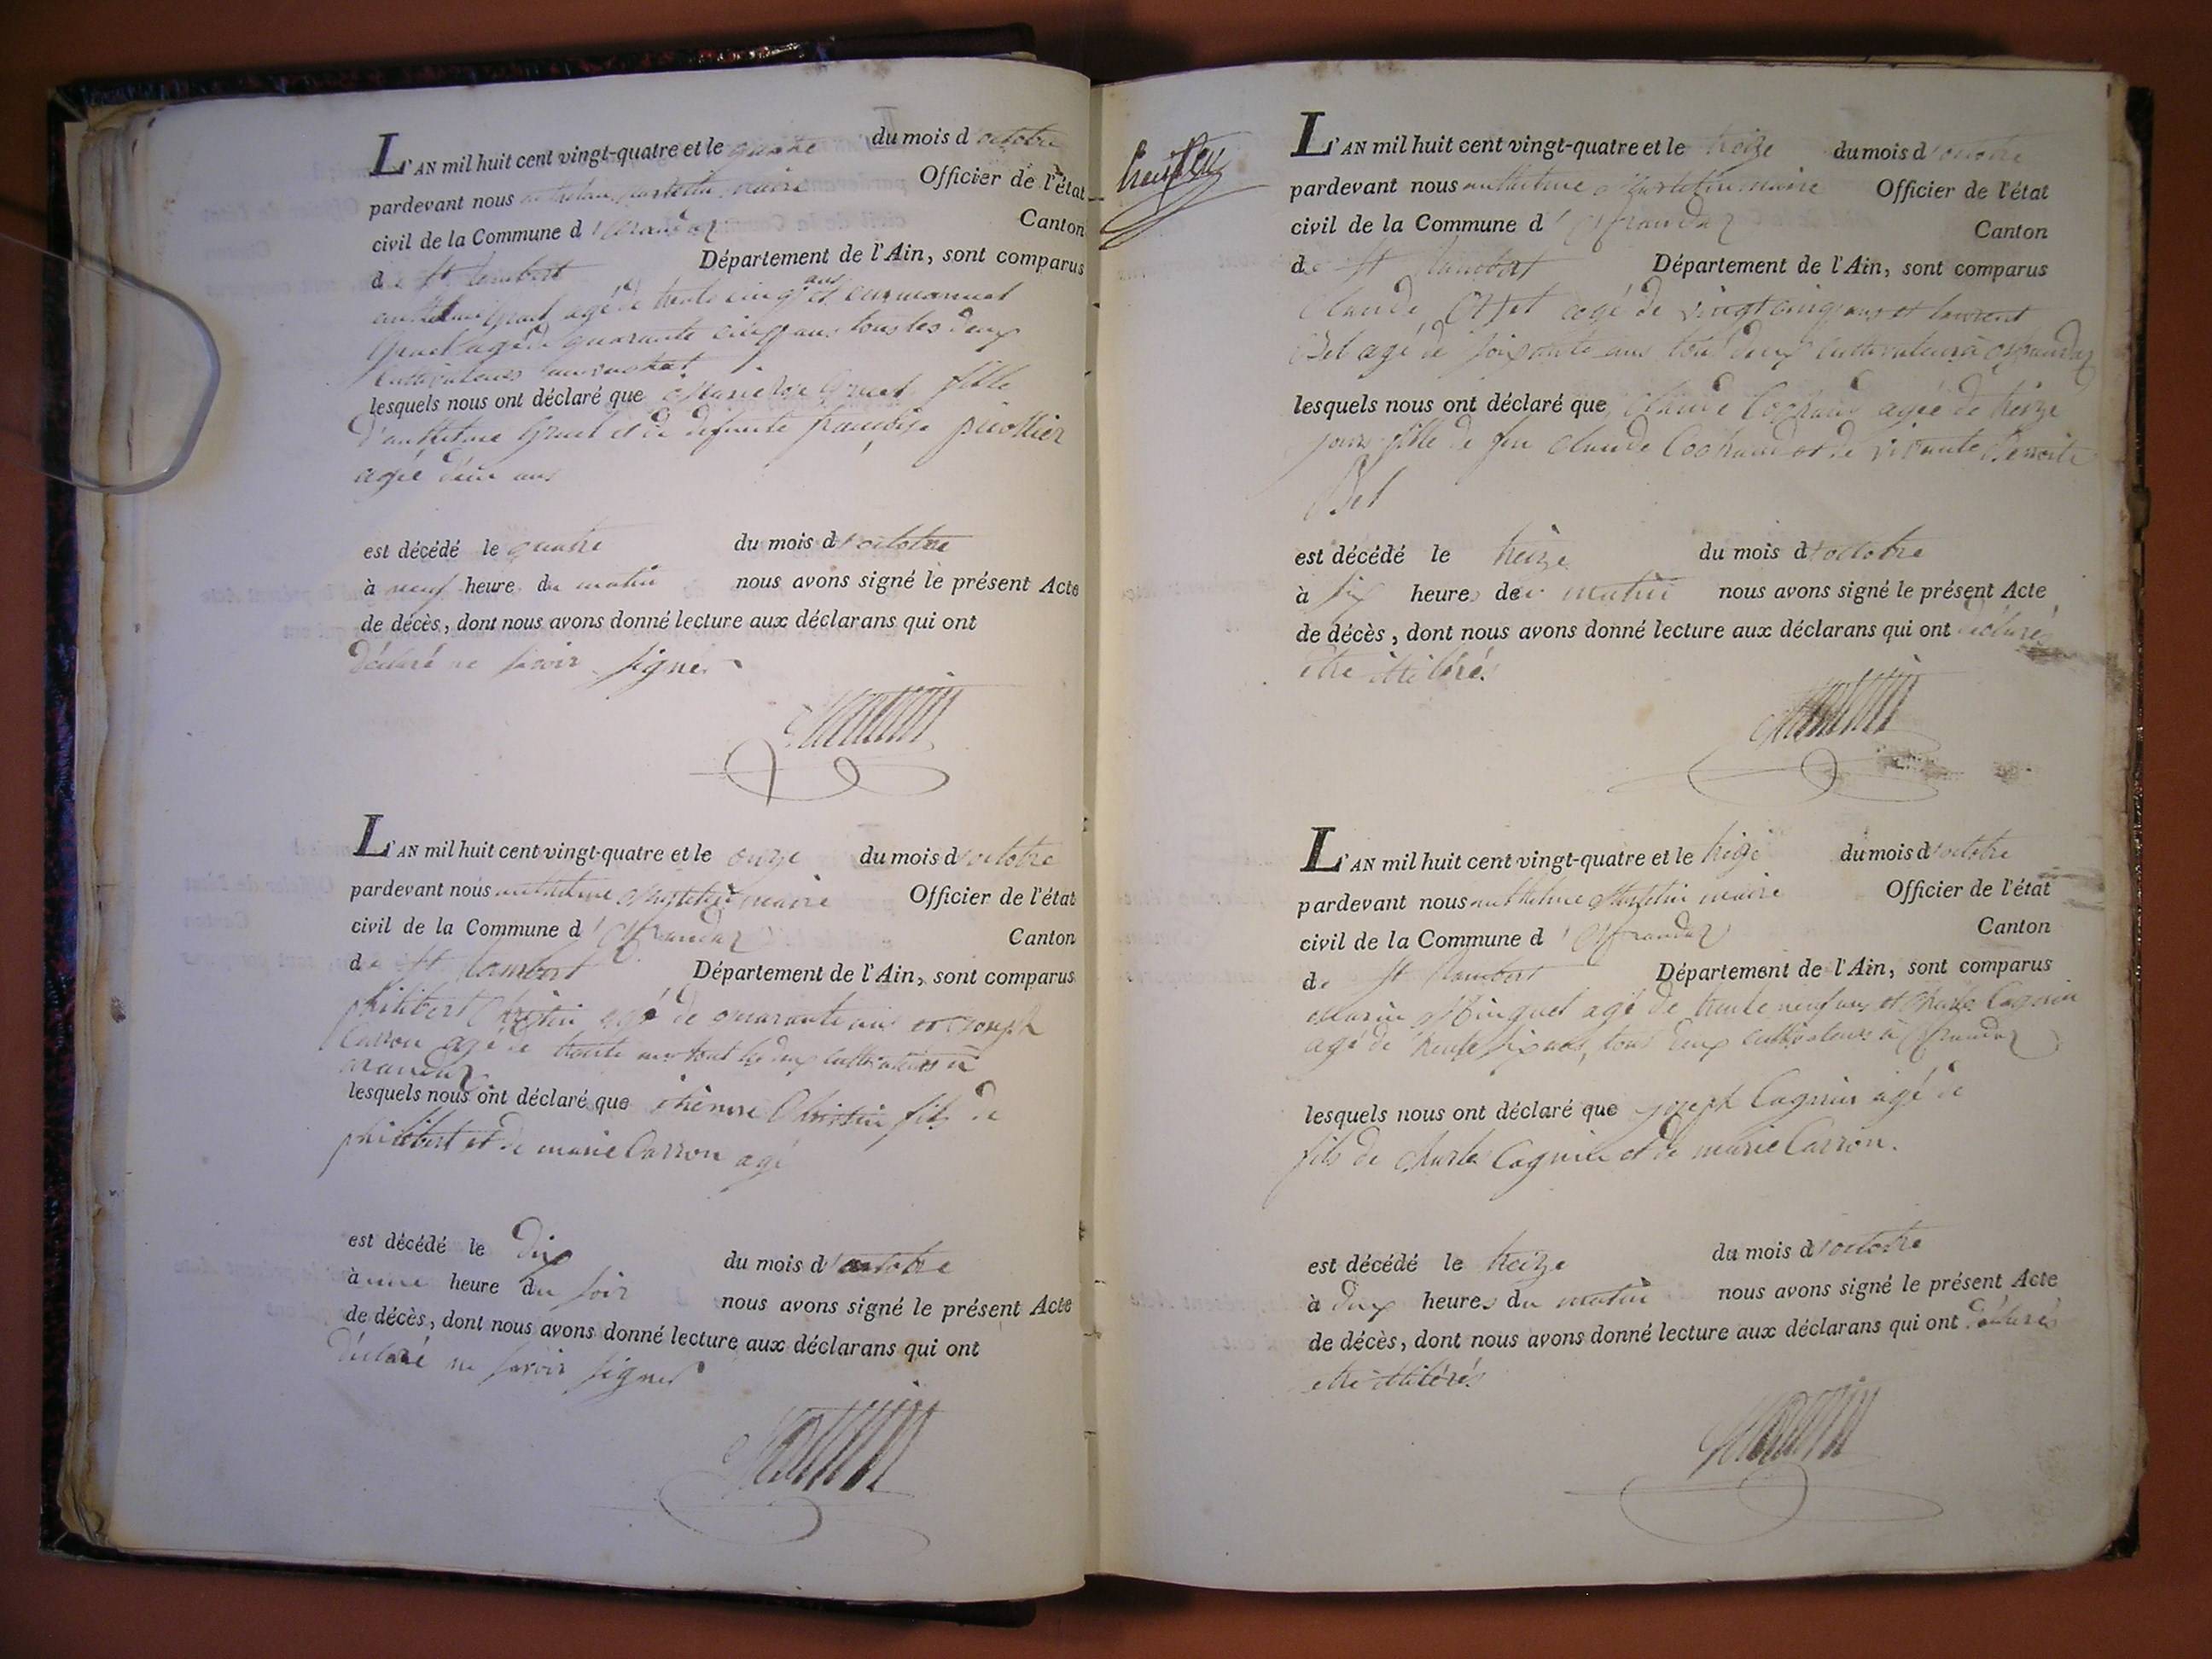 L'AN mil huit cent vingt-quatre et le quatre du mois d octobre
pardevant nous maire Officier de l'état
civil de la Commune d Canton
de St Rambert Département de l'Ain, sont comparus
agé de trente cinq ans et emmanuel
agé de quarante cinq ans tous les deux
Cultivateurs
lesquels nous ont déclaré que Marie fille
d'anthelme et de defunte françoise
agée d'un ans
est décédé le quatre du mois d'octobre
à neuf heure du matin nous avons signé le présent Acte
de décès, dont nous avons donné lecture aux déclarans qui ont
déclaré ne savoir signer
L'AN mil huit cent vingt-quatre et le onze du mois d'octobre
pardevant nous anthelme maire Officier de l'état
civil de la Commune d' Canton
de St Rambert Département de l'Ain, sont comparus
philibert Christin agé de quarante ans et Joseph
Carron agé de trente ans tout les deux cultivateurs à
lesquels nous ont déclaré que etienne Christin fils de
philibert et de marie Carron agé
est décédé le dix du mois d'octobre
à une heure du soir nous avons signé le présent Acte
de décès, dont nous avons donné lecture aux déclarans qui ont
déclaré ne savoir signer
L'AN mil huit cent vingt-quatre et le treize du mois d'octobre
pardevant nous anthelme maire Officier de l'état
civil de la Commune d' Canton
de St Rambert Département de l'Ain, sont comparus
Claude agé de vingt cinq ans et laurent
Bel agé de soixante ans tous deux cultivateurs à
lesquels nous ont déclaré que Claude Cochaud agée de treize
jours fille de feu claude Cochaud et de vivante Benoite
Bel
est décédé le treize du mois d'octobre
à six heures de matin nous avons signé le présent Acte
de décès, dont nous avons donné lecture aux déclarans qui ont déclarés
etre illitérés
L'AN mil huit cent vingt-quatre et le treize du mois d'octobre
pardevant nous anthelme maire Officier de l'état
civil de la Commune d' Canton
de St Rambert Département de l'Ain, sont comparus
Marin agé de trente neuf ans et Charles Cagnin
agé de trente six ans, tous deux cultivateurs à
lesquels nous ont déclaré que joseph Cagnin agé de
fils de charles Cagnin et de marie Carron.
est décédé le treize du mois d'octobre
à deux heures du matin nous avons signé le présent Acte
de décès, dont nous avons donné lecture aux déclarans qui ont déclarés
etre illitérés